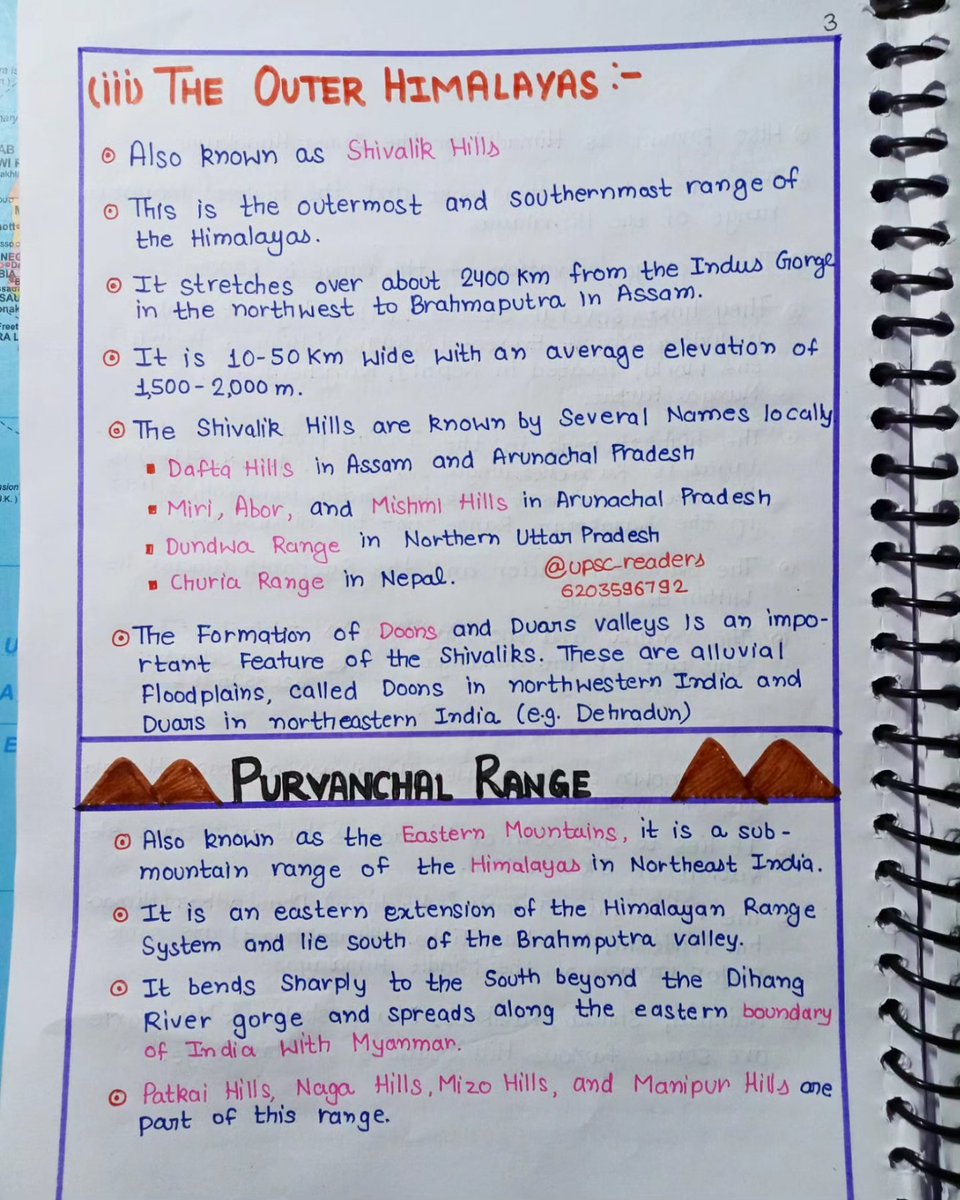 3
(iii) THE OUTER HIMALAYAS :-
Also known as Shivalik Hills
This is the outermost and southernmost range of
the Himalayas.
It stretches over about 2400 Km from the Indus Gorge
in the northwest to Brahmaputra in Assam.
It is 10-50 Km wide with an average elevation of
1,500 - 2,000 m.
The Shivalik Hills are known by Several Names locally
Dafta Hills in Assam and Arunachal Pradesh
Miri, Abor, and Mishmi Hills in Arunachal Pradesh
Dundwa Range in Northern Uttar Pradesh
Churia Range in Nepal.
@upsc_readers
6203596792
The Formation of Doons and Duars valleys is an impo-
rtant Feature of the Shivaliks. These are alluvial
floodplains, called Doons in northwestern India and
Duars in northeastern India (e.g. Dehradun)
PURVANCHAL RANGE
Also known as the Eastern Mountains, it is a sub-
mountain range of the Himalayas in Northeast India.
It is an eastern extension of the Himalayan Range
System and lie south of the Brahmputra valley.
It bends Sharply to the South beyond the Dihang
River gorge and spreads along the eastern boundary
of India with Myanmar.
Patkai Hills, Naga Hills, Mizo Hills, and Manipur Hills are
part of this range.